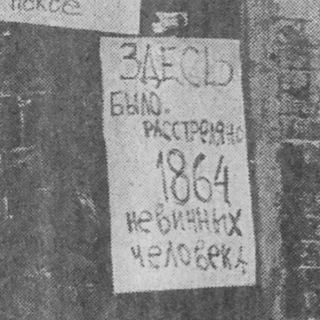 ЗДЕСЬ
БЫЛО.
РАССТРЕЛЯНО
1864
невинных
человека